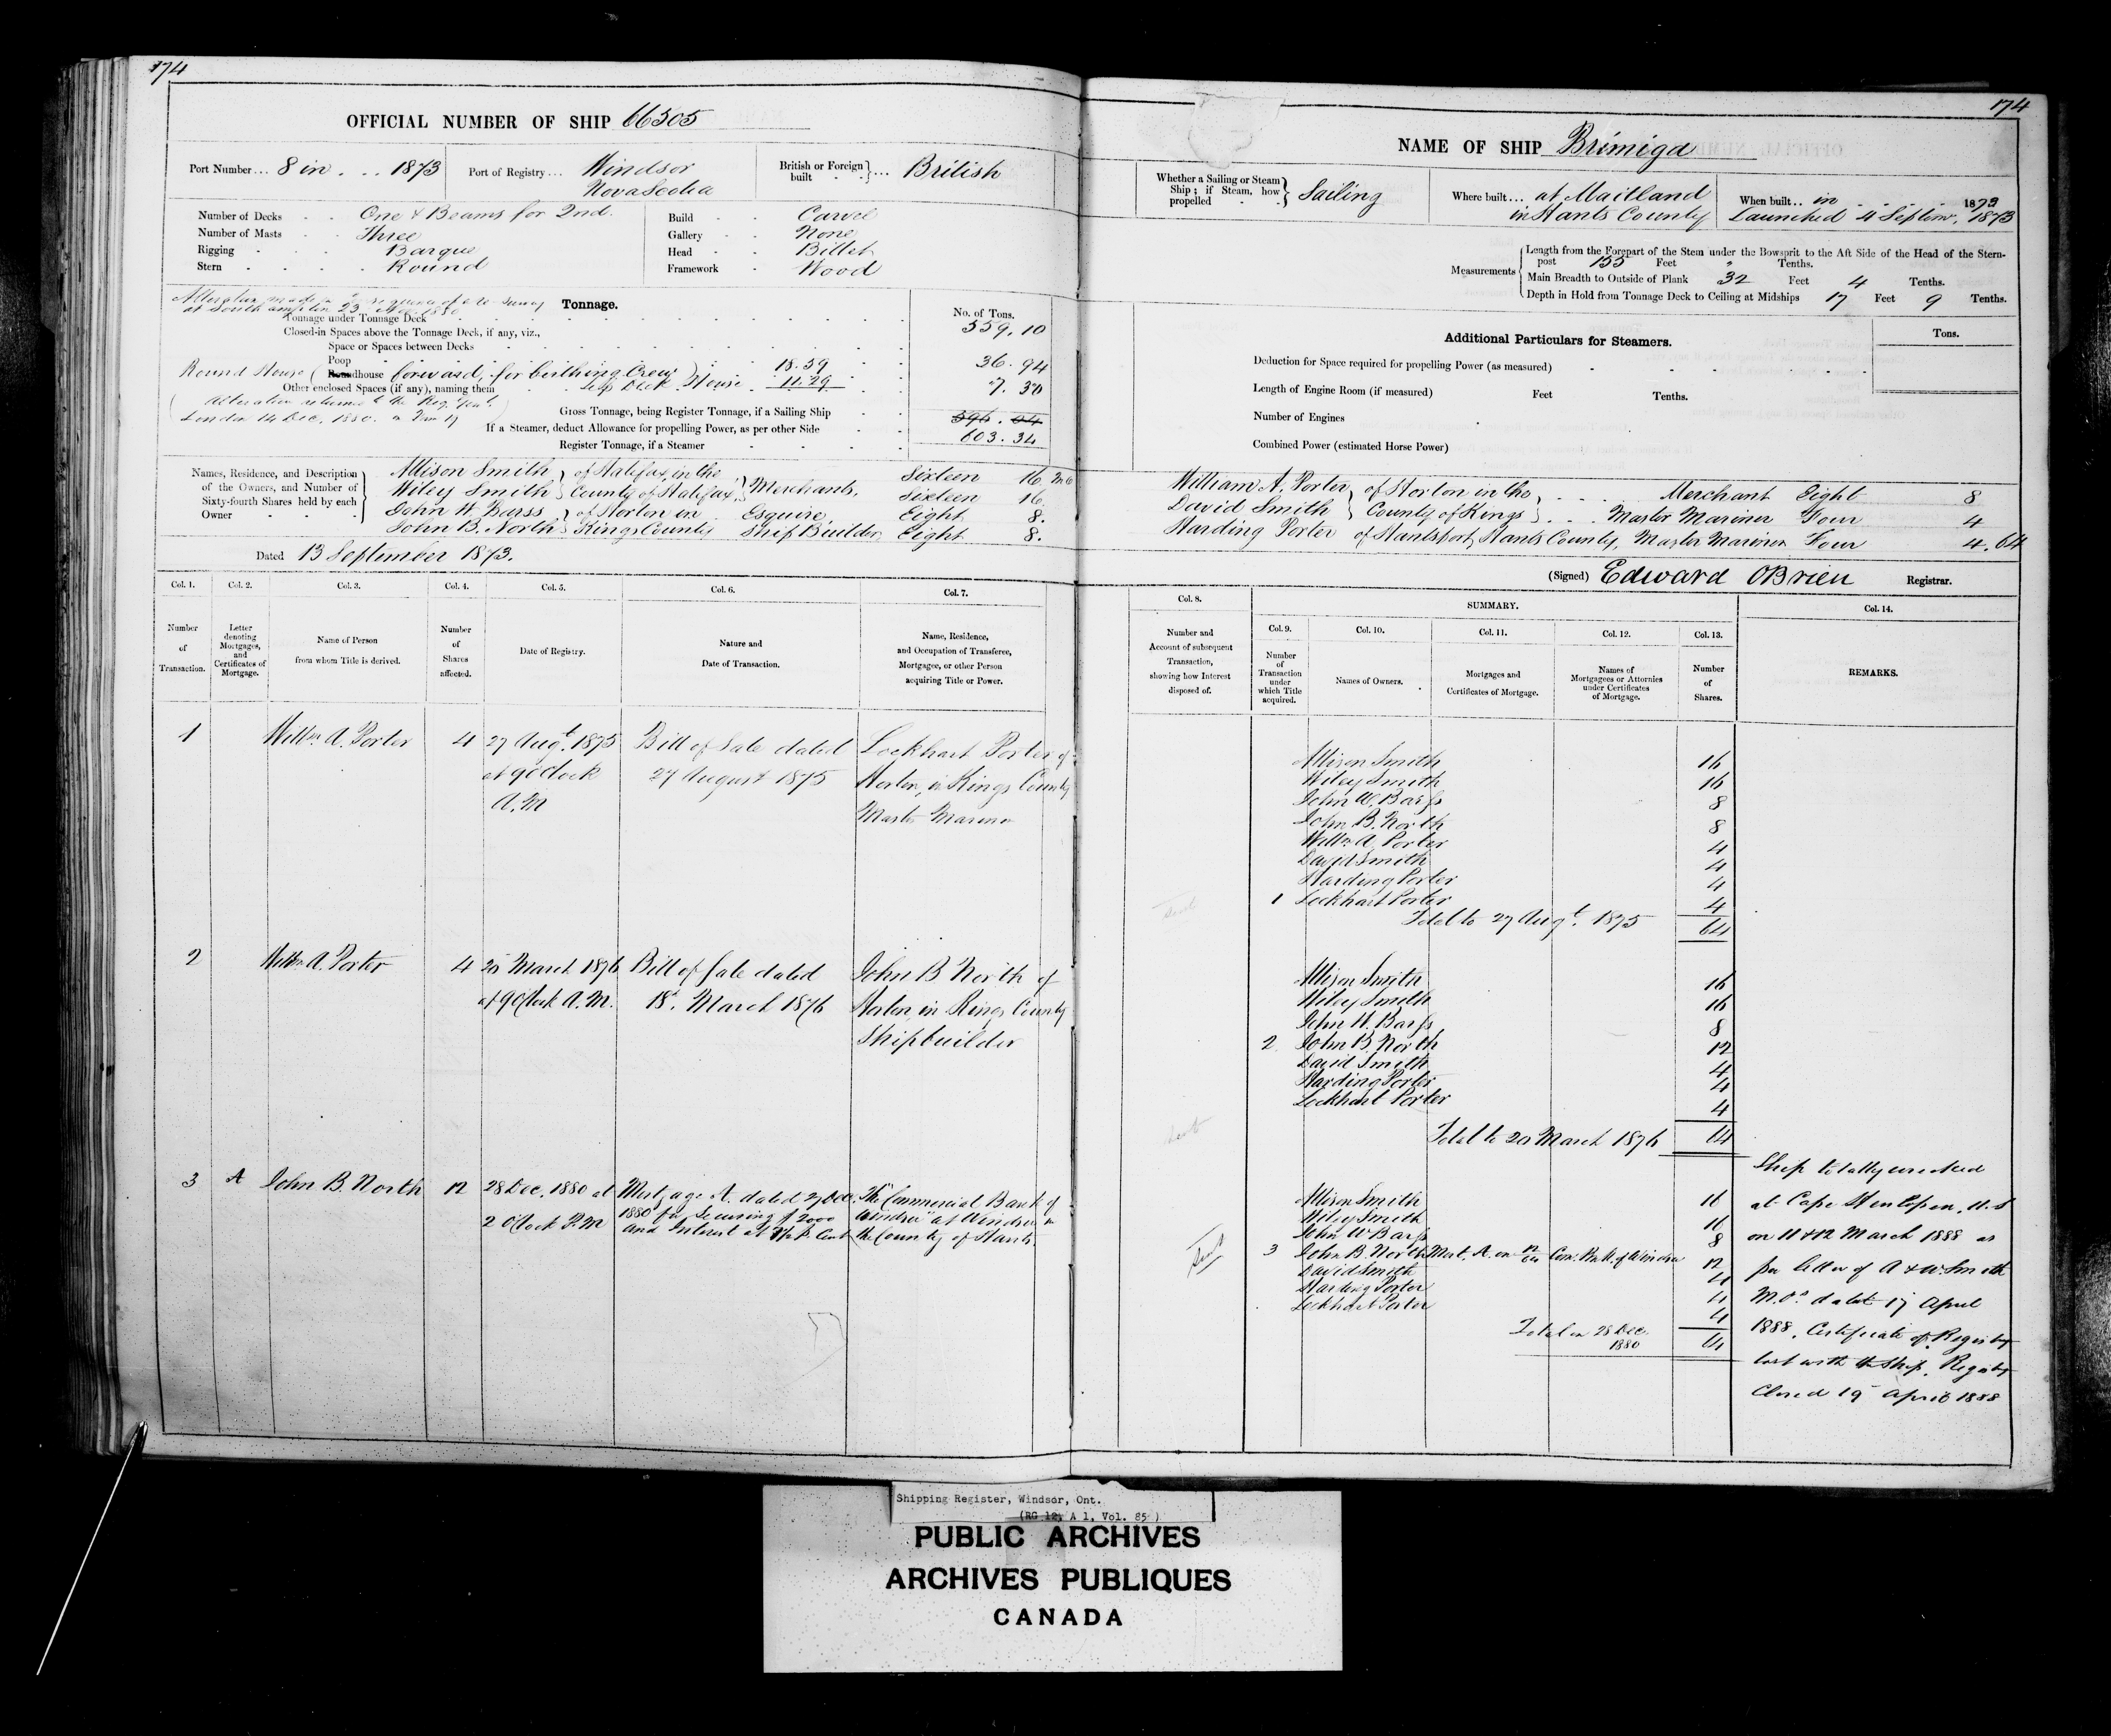 174
OFFICIAL NUMBER OF SHIP 66505
Port Number... 8 in 1873
Port of Registry... Windsor
Nova Scotia
British or Foreign built ... British
Number of Decks One & Beams for 2nd.
Number of Masts Three
Rigging Barque
Stern Round
Build Carvel
Gallery None
Head Billet
Framework Wood
Alteration made in consequence of a re-survey
at Southampton 23 Nov. 1880
Tonnage.
No. of Tons.
Tonnage under Tonnage Deck 559.10
Closed-in Spaces above the Tonnage Deck, if any, viz.,
Space or Spaces between Decks
Poop
Round House (Roundhouse forward, for birthing Crew) 18.59 36.94
Other enclosed Spaces (if any), naming them Deck House 11.29 7.30
Alteration returned to the Reg. Genl.
London 14 Dec. 1880.
Gross Tonnage, being Register Tonnage, if a Sailing Ship 596.04
If a Steamer, deduct Allowance for propelling Power, as per other Side 603.34
Register Tonnage, if a Steamer
Names, Residence, and Description
of the Owners, and Number of
Sixty-fourth Shares held by each
Owner
Allison Smith } of Halifax, in the } Merchants, Sixteen 16
Wiley Smith } County of Halifax } Sixteen 16
John W. Barss } of Horton in Esquire, Eight 8.
John B. North } Kings County Ship Builder, Eight 8.
Dated 13 September 1873.
Col. 1.
Number
of
Transaction.
Col. 2.
Letter
denoting
Mortgages,
and
Certificates of
Mortgage.
Col. 3.
Name of Person
from whom Title is derived.
Col. 4.
Number
of
Shares
affected.
Col. 5.
Date of Registry.
Col. 6.
Nature and
Date of Transaction.
Col. 7.
Name, Residence,
and Occupation of Transferee,
Mortgagee, or other Person
acquiring Title or Power.
1 Willm A. Porter 4 27 Augt. 1875 Bill of Sale dated Lockhart Porter of
at 9 oClock 27 August 1875 Horton, in Kings County
A.M Master Mariner
2 Willm A. Porter 4 20 March 1876 Bill of Sale dated John B North of
at 9 oClock A.M. 18. March 1876 Horton, in Kings County
Shipbuilder
3 A John B. North 12 28 Dec. 1880 at Mortgage A. dated 27 Dec. "The Commercial Bank of
2 oClock P.M 1880 for Securing $2000 Windsor" at Windsor in
and Interest at 7 p. Cent the County of Hants.
174
NAME OF SHIP Brimiga
Whether a Sailing or Steam
Ship; if Steam, how
propelled
Sailing
Where built... at Maitland
in Hants County
When built.. in 1873
Launched 4 Septem. 1873
Measurements
Length from the Forepart of the Stem under the Bowsprit to the Aft Side of the Head of the Stern-
post 135 Feet " Tenths.
Main Breadth to Outside of Plank 32 Feet 4 Tenths.
Depth in Hold from Tonnage Deck to Ceiling at Midships 17 Feet 9 Tenths.
Additional Particulars for Steamers.
Tons.
Deduction for Space required for propelling Power (as measured)
Length of Engine Room (if measured) Feet Tenths.
Number of Engines
Combined Power (estimated Horse Power)
William A. Porter } of Horton in the } Merchant Eight 8
David Smith } County of Kings } Master Mariner Four 4
Harding Porter of Hantsport, Hants County, Master Mariner Four 4. 64
(Signed) Edward OBrien Registrar.
Col. 8.
Number and
Account of subsequent
Transaction,
showing how Interest
disposed of.
SUMMARY.
Col. 9.
Number
of
Transaction
under
which Title
acquired.
Col. 10.
Names of Owners.
Col. 11.
Mortgages and
Certificates of Mortgage.
Col. 12.
Names of
Mortgagees or Attornies
under Certificates
of Mortgage.
Col. 13.
Number
of
Shares.
Col. 14.
REMARKS.
Allison Smith 16
Wiley Smith 16
John W. Barss 8
John B. North 8
Willm A. Porter 4
David Smith 4
Harding Porter 4
1 Lockhart Porter 4
Total to 27 Augt. 1875 64
Allison Smith 16
Wiley Smith 16
John W. Barss 8
2 John B. North 12
David Smith 4
Harding Porter 4
Lockhart Porter 4
Total to 20 March 1876 64
Allison Smith 16
Wiley Smith 16
John W Barss 8
3 John B. North Mort. A. on 12/64 Com. Bnk. of Windsor 12
David Smith 4
Harding Porter 4
Lockhart Porter 4
Total on 28 Dec.
1880 64
Ship totally wrecked
at Cape Henlopen, U.S
on 11 & 12 March 1888 as
per letter of A & W. Smith
M.O.s dated 17 April
1888. Certificate of Registry
lost with the Ship. Registry
Closed 19 April 1888
Shipping Register, Windsor, Ont.
(RG 12, A 1, Vol. 85)
PUBLIC ARCHIVES
ARCHIVES PUBLIQUES
CANADA